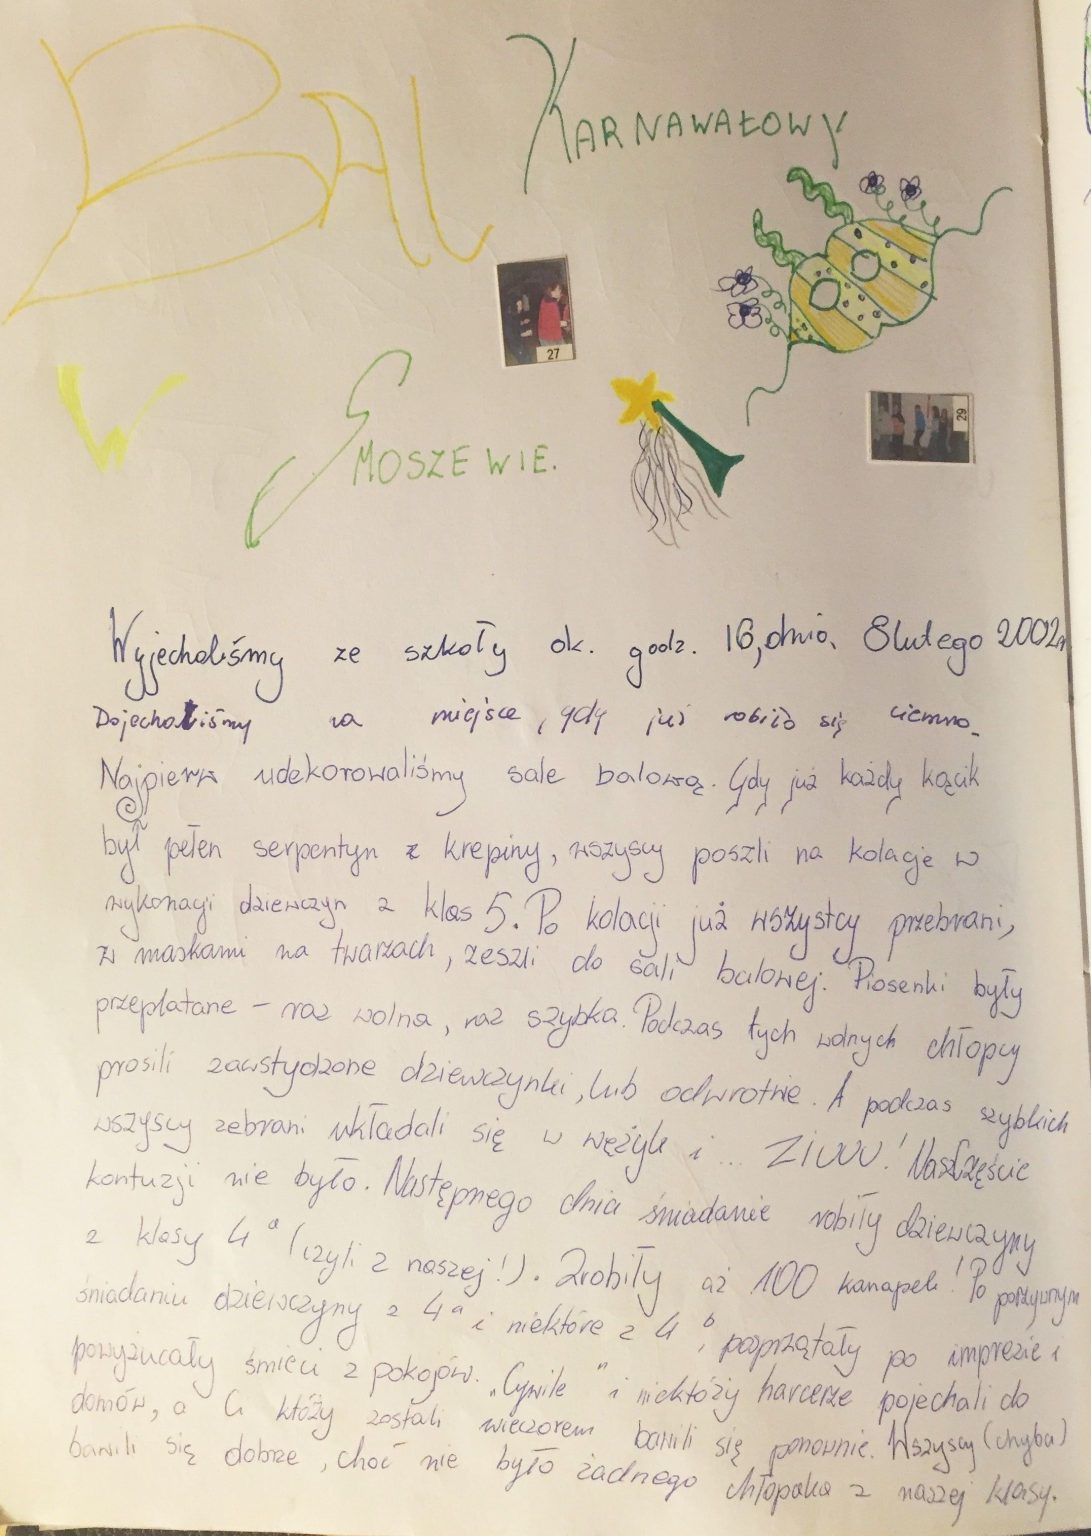 BAL KARNAWAŁOWY
27
29
W SMOSZEWIE.
Wyjechaliśmy ze szkoły ok. godz. 16, dnia 8 lutego 2002r
Dojechaliśmy na miejsce, gdy już robiło się ciemno.
Najpierw udekorowaliśmy sale balową. Gdy już każdy kącik
był pełen serpentyn z krepiny, wszyscy poszli na kolacje w
wykonagi dziewczyn z klas 5. Po kolacji już wszystcy przebrani,
z maskami na twarzach, zeszli do sali balowej. Piosenki były
przeplatane - raz wolna, raz szybka. Podczas tych wolnych chłopcy
prosili zawstydzone dziewczynki, lub odwrotnie. A podczas szybkich
wszyscy zebrani układali się w wężyk i ... ZIUUU! Naszczęście
kontuzji nie było. Następnego dnia śniadanie robiły dziewczyny
z klasy 4a (czyli z naszej!). Zrobiły aż 100 kanapek! Po pożywnym
śniadaniu dziewczyny z 4a i niektóre z 4b, poprzątały po imprezie i
powyżucały śmieci z pokojów. "Cywile" i niektóży harcerze pojechali do
domów, a Ci któży zostali wieczorem bawili się ponownie. Wszyscy (chyba)
bawili się dobrze, choć nie było żadnego chłopaka z naszej klasy.